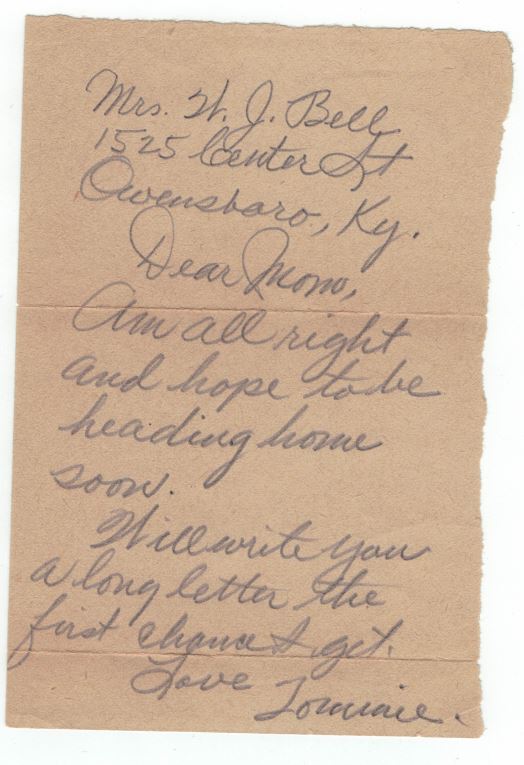 Mrs. W. J. Bell
1525 Center St
Owensboro, Ky.
Dear Mom,
Am all right
and hope to be
heading home
soon.
Will write you
a long letter the
first chance I get.
Love Tommie.